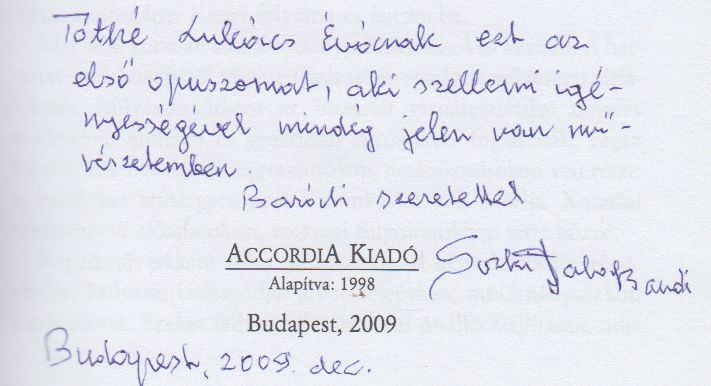 Tóthé Lukács Évának ezt az
első opuszomat, aki szellemi igé-
nyességével mindég jelen van mű-
vészetemben
Baráti szeretettel
ACCORDIA KIADÓ
Alapítva: 1998
Budapest, 2009
Budapest, 2009. dec.